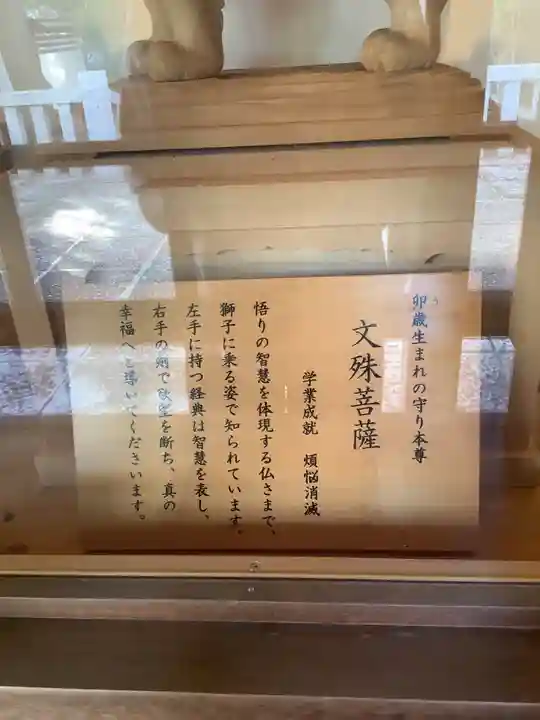 卯歳生まれの守り本尊
う
文殊菩薩
学業成就 煩悩消滅
悟りの智慧を体現する仏さまで、
獅子に乗る姿で知られています。
左手に持つ経典は智慧を表し、
右手の剣で欲望を断ち、真の
幸福へと導いてくださいます。